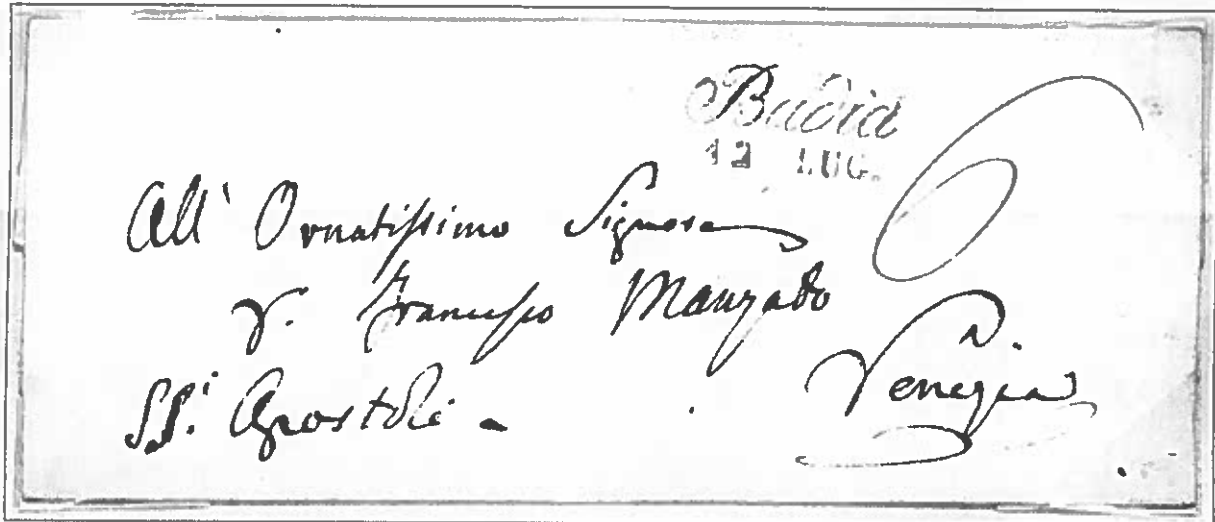 Badia
12 LUG.
All' Ornatissimo Signore
S. Francesco Manzado
SS.i Apostoli -
Venezia